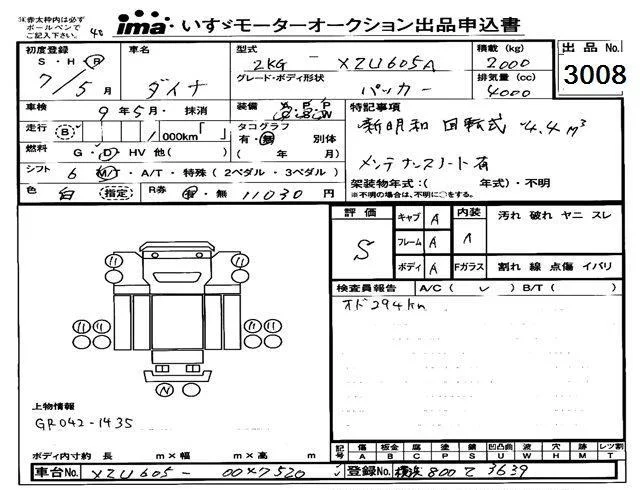 ※赤太枠内は必ず
ボールペンで
ご記入下さい。
ima いすゞモーターオークション出品申込書
初度登録
S・H・R
7/5月
車名
ダイナ
型式
2KG - XZU605A
積載(kg)
2000
出品No.
3008
グレード・ボディ形状
パッカー
排気量(cc)
4000
車検 9年5月・抹消
装備 A・P・P
C・S・W
特記事項
新明和 回転式 4.4m³
走行 B 1,000km「 」
タコグラフ
有・無 別体
( 年 月)
燃料 G・D・HV 他( )
メンテナンスノート有
シフト 6 M/T・A/T・特殊(2ペダル・3ペダル)
架装物年式:( 年式)・不明
※不明の場合は、不明に○をする。
色 白 (指定) R券 有・無 11030円
評価 S
キャブ A
フレーム A
ボディ A
内装
汚れ 破れ ヤニ スレ
Fガラス 割れ 線 点傷 イバリ
検査員報告 A/C( ✓ ) B/T( )
オド294km
上物情報
GR042-1435
ボディ内寸約 長 m×幅 m×高 m
記号 傷 A 板金 B 腐 C 塗 P 錆 S 凹凸曲 U 波 W 穴 H 跡 M レツ割 T
車台No. XZU605-00*7520
登録No. 横浜800て3639